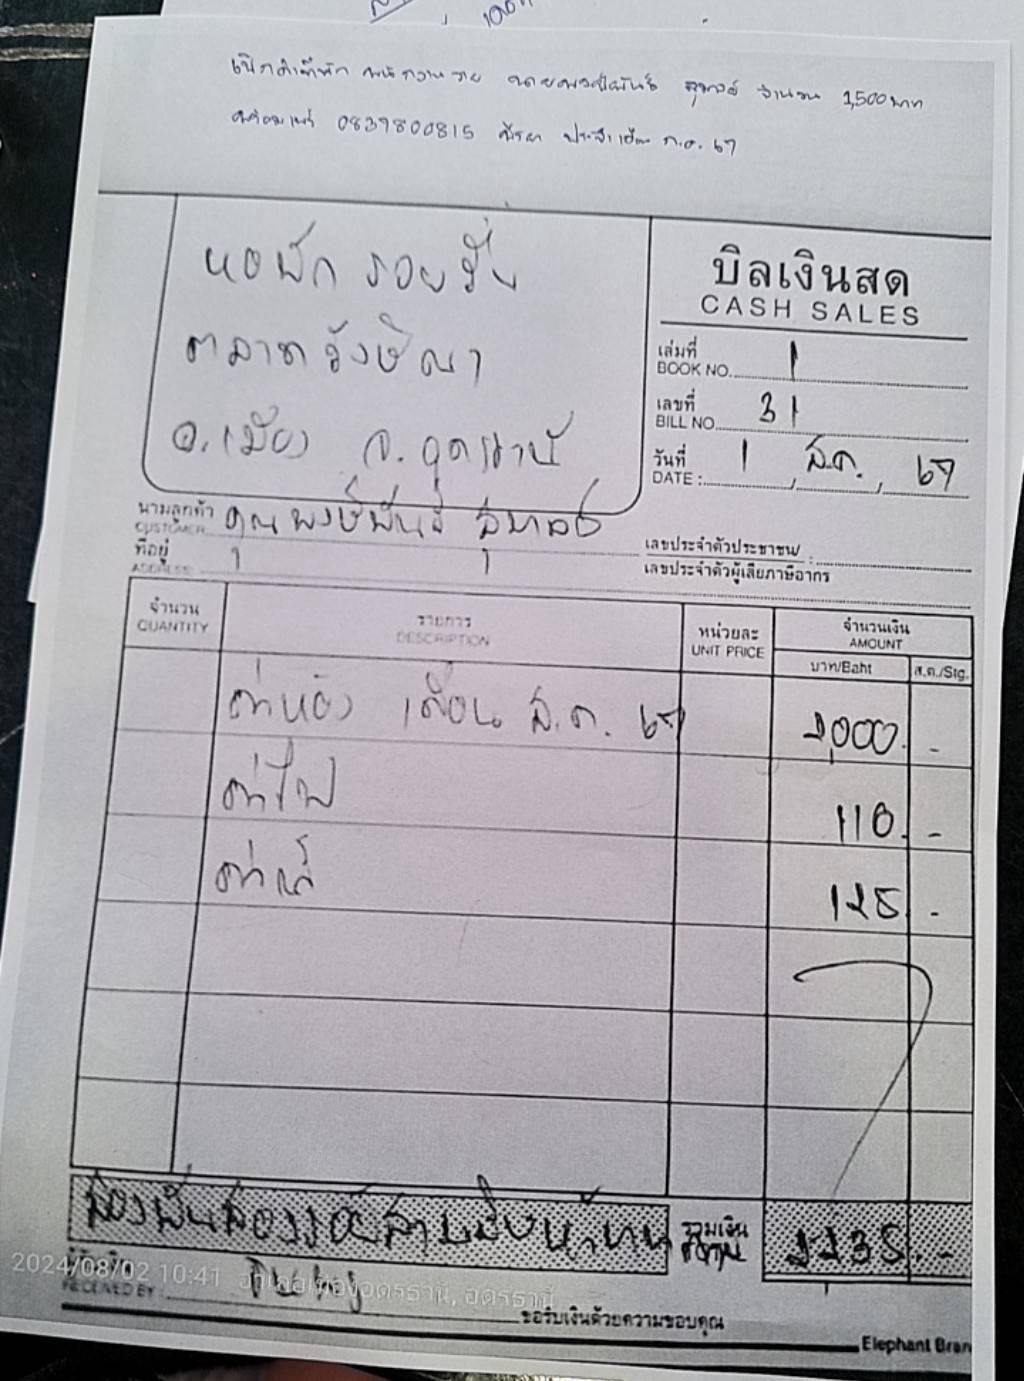 เบิกค่าที่พัก พนักงานขาย นายพงษ์พันธ์ จำนวน 1,500 บาท
0839800815 ประจำเดือน ก.ค. 67
หอพัก รวยริน
ตลาดรังษิณา
อ.เมือง จ.อุดรธานี
บิลเงินสด
CASH SALES
เล่มที่ BOOK NO. 1
เลขที่ BILL NO. 31
วันที่ DATE : 1 ส.ค. 67
นามลูกค้า CUSTOMER คุณพงษ์พันธ์
ที่อยู่ ADDRESS
เลขประจำตัวประชาชน/ :
เลขประจำตัวผู้เสียภาษีอากร
จำนวน QUANTITY รายการ DESCRIPTION หน่วยละ UNIT PRICE จำนวนเงิน AMOUNT
บาท/Baht ส.ต./Stg.
ค่าห้อง เดือน ส.ค. 67 2,000.-
ค่าไฟ 110.-
ค่าน้ำ 125.-
สองพันสองร้อยสามสิบห้าบาท รวมเงิน 2235.-
2024/08/02 10:41 อำเภอเมืองอุดรธานี, อุดรธานี
ผู้รับเงิน RECEIVED BY :
ขอรับเงินด้วยความขอบคุณ
Elephant Bran